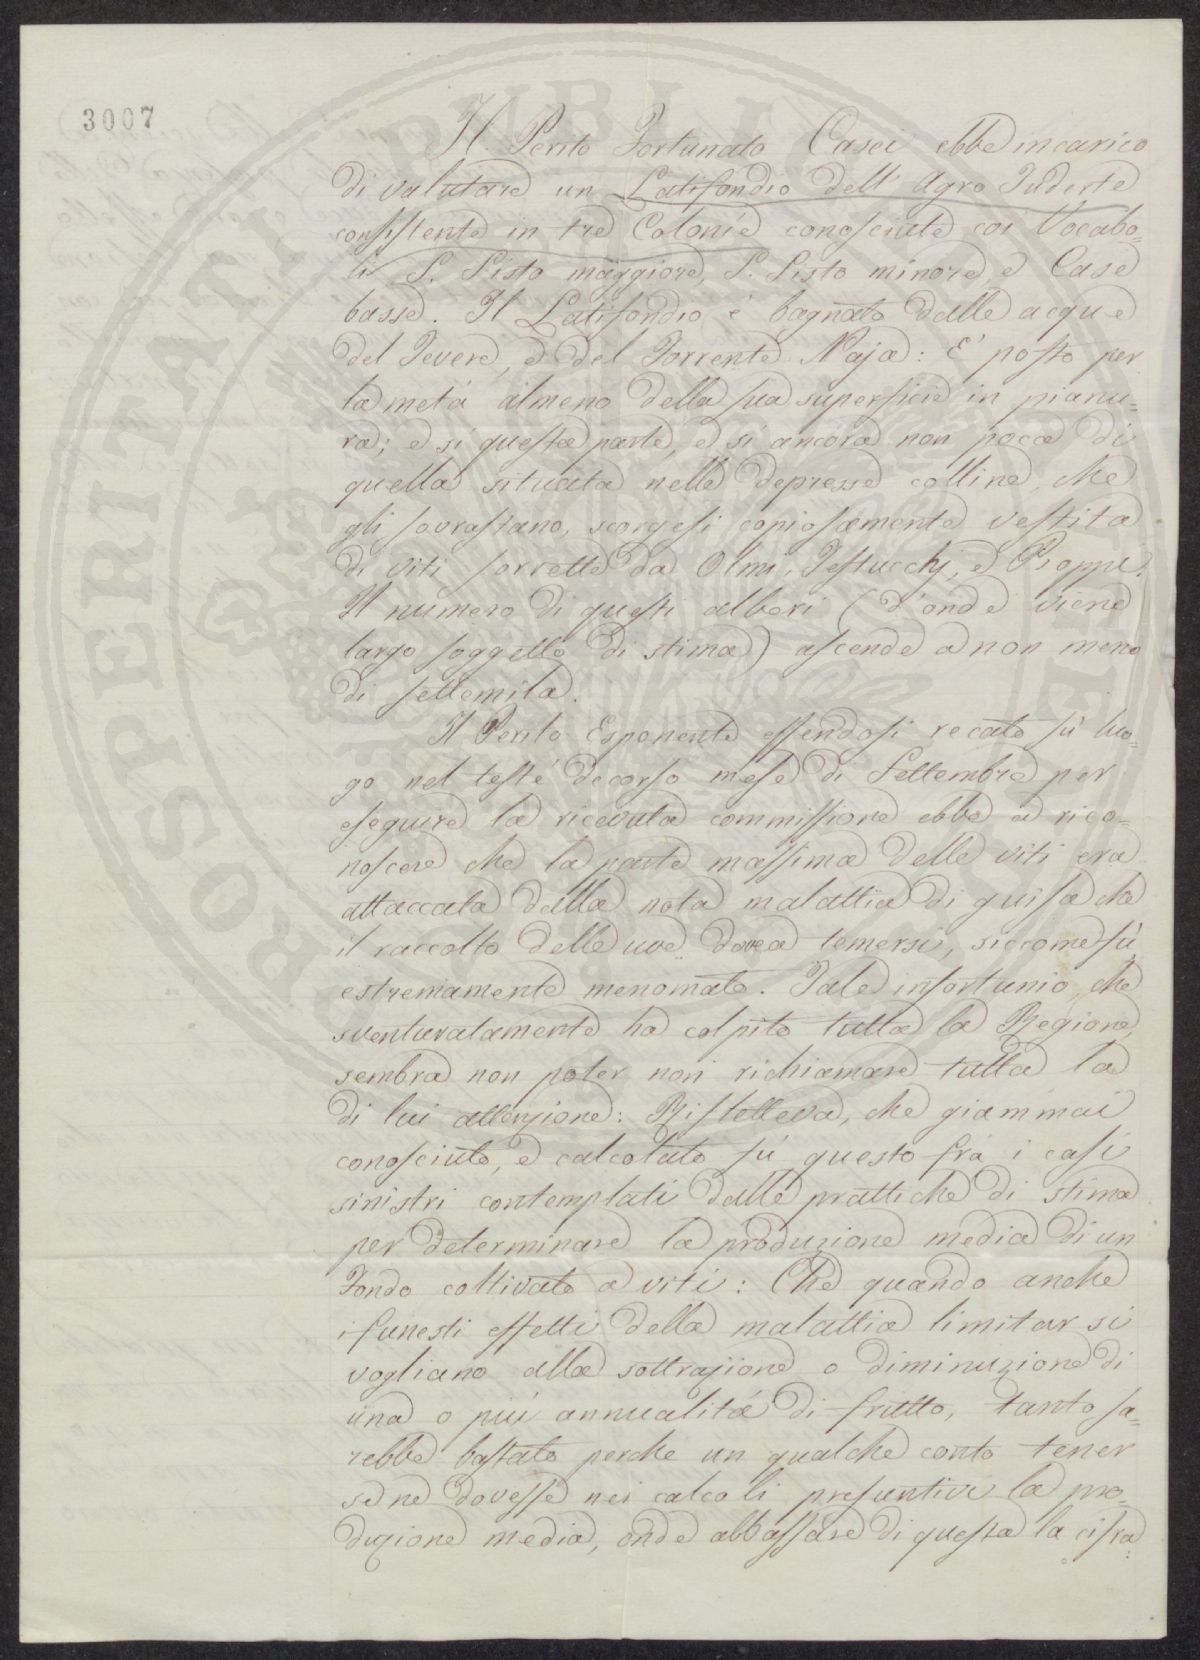 3007
Il Perito Fortunato Casei ebbe incarico
di valutare un Latifondio dell' Agro Tuderte
consistente in tre Colonie conosciute coi Vocabo-
li S. Sisto maggiore, S. Sisto minore, e Case
basse. Il Latifondio è bagnato dalle acque
del Tevere, e del Torrente Naja: E' posto per
la metà almeno della sua superficie in pianu-
ra; e sì questa parte, e sì ancora non poca di
quella situata nelle depresse colline, che
gli sovrastano, scorgesi copiosamente vestita
di viti sorrette da Olmi, Testucchj, e Pioppi.
Il numero di questi alberi (d'onde viene
largo soggetto di stima) ascende a non meno
di settemila.
Il Perito Esponente essendosi recato sù luo-
go nel testé decorso mese di Settembre per
eseguire la ricevuta commissione ebbe a rico-
noscere che la parte massima delle viti era
attaccata dalla nota malattia di guisa che
il raccolto delle uve dovea temersi, siccome fù
estremamente menomato. Tale infortunio, che
sventuratamente ha colpito tutta la Regione,
sembra non poter non richiamare tutta la
di lui attenzione: Rifletteva, che giammai
conosciuto, e calcolato fù questo frà i casi
sinistri contemplati dalle prattiche di stima
per determinare la produzione media di un
Fondo coltivato a viti: Che quando anche
i funesti effetti della malattia limitar si
vogliano alla sottrazione o diminuzione di
una o più annualità di frutto, tanto sa-
rebbe bastato perche un qualche conto tener
se ne dovesse nei calcoli presuntivi la pro-
duzione media, onde abbassare di questa la cifra:
PROSPERITATI PUBLICAE